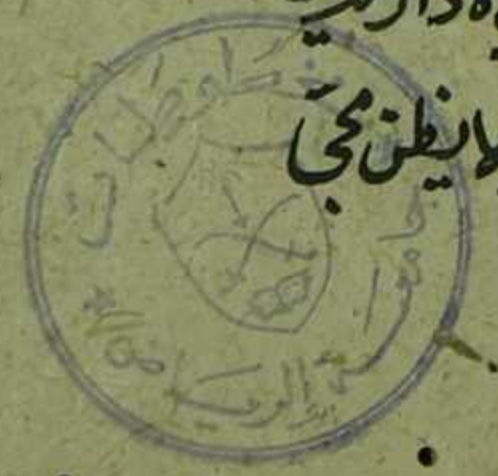 لا يظن محي
مخطوطات
جامعة الرياض